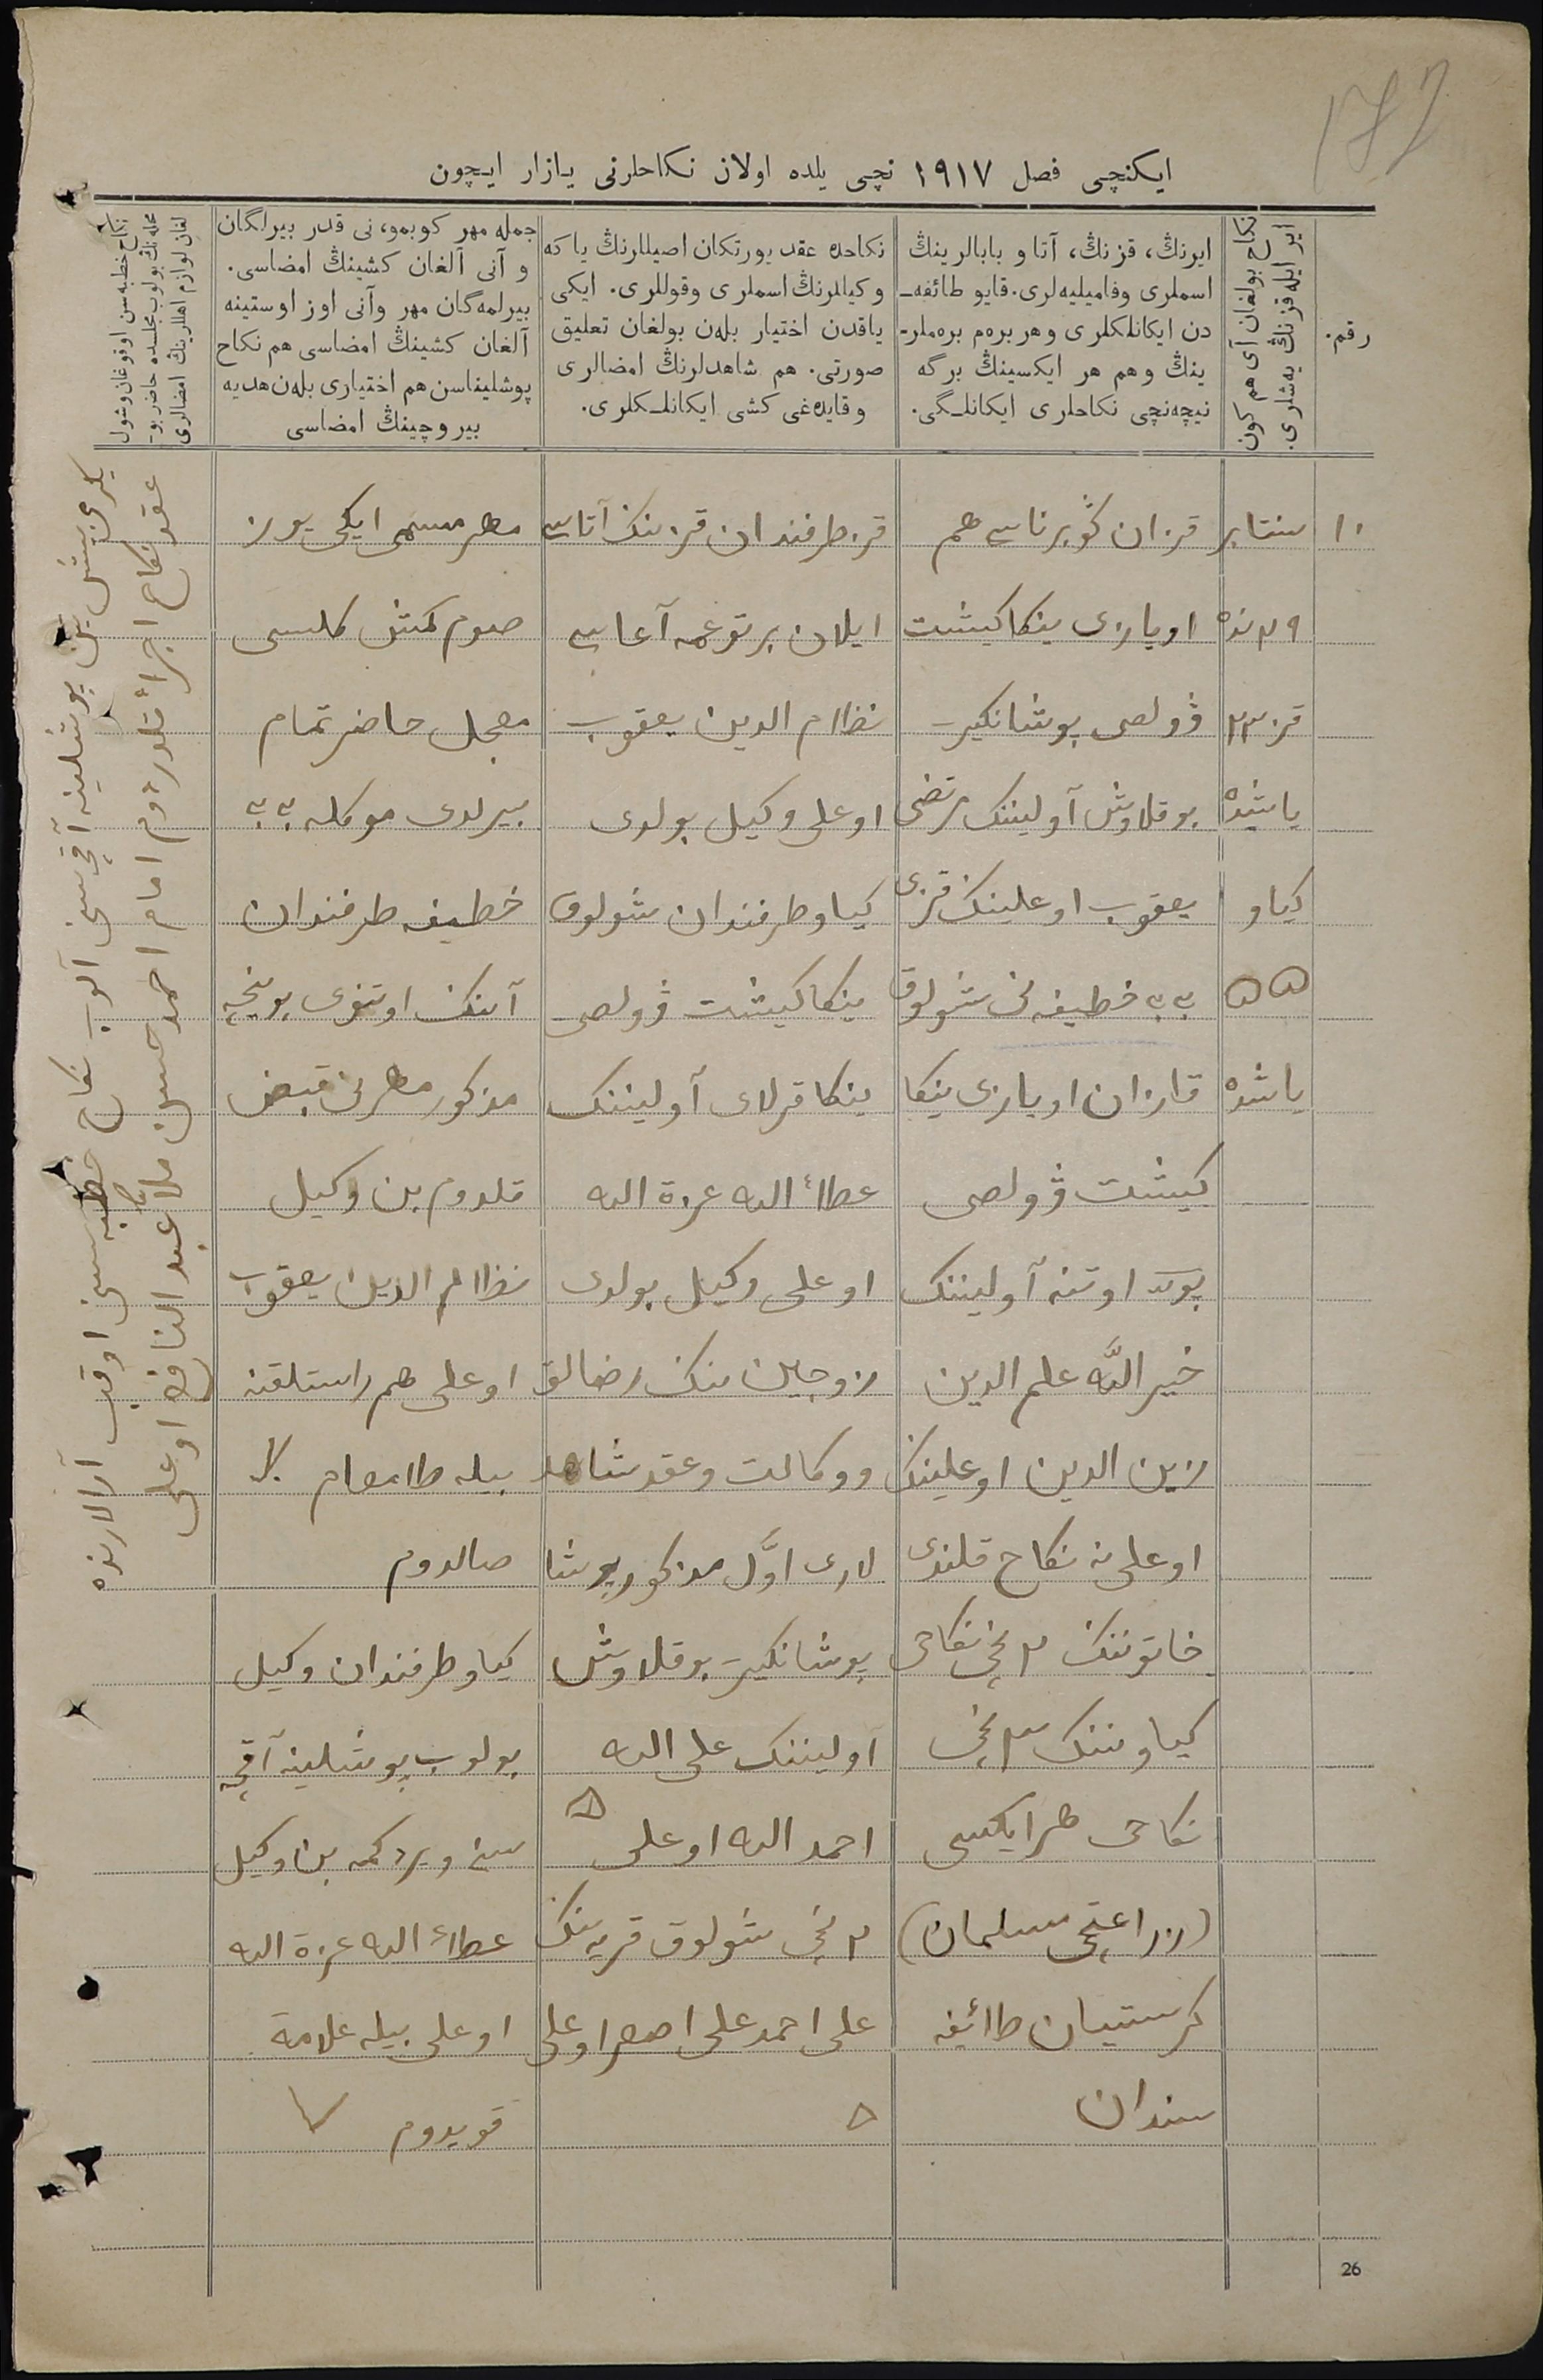 ایکنچی فصل ۱۹۱۷ نچی یلده اولان نکاحلرنی یازار ایچون
رقم.
نکاح بولغان آی هم کون
ایر ایله قزنڭ یه‌شلری.
ایرنڭ، قزنڭ، آتا و بابالرینڭ
اسملری وفامیلیه‌لری. قایو طائفه‌ـ
دن ایکانلکلری و هر بره‌م بره‌ملرـ
ینڭ و هم هر ایکسینڭ برگه
نیچه‌نچی نکاحلری ایکانلـگی.
نکاحده عقد یورتکان اصیللرنڭ یا که
وکیللرنڭ اسملری وقوللری. ایکی
یاقدن اختیار بله‌ن بولغان تعلیق
صورتی. هم شاهدلرنڭ امضالری
و قایده‌غی کشی ایکانلـکلری.
جمله مهر کوبمو، نی قدر بیرلگان
و آنی آلغان کشینڭ امضاسی.
بیرلمه‌گان مهر وآنی اوز اوستینه
آلغان کشینڭ امضاسی هم نکاح
پوشلیناسن هم اختیاری بله‌ن هدیه
بیر وچینڭ امضاسی
نکاح خطبه‌سن اوقوغان وشول
محله‌نڭ بولوب مجلسده حاضر بوـ
لغان لوازم اهللرینڭ امضالری
۱۰
سنتابر
۲۹ نده
قز ۲۳
یاشیده
کیاو
۵۵
یاشده
قزان گوبرناسی هم
اویازی ینکا کیشت
ڤولصی بوشانکیر
بوقلاوش آولیننک مرتضی
یعقوب اوغلیننک قزی
خطیفه نی شولوق
قازان اویازی ینکا
کیشت ڤولصی
اوتنه آولیننک
خیر الله علم الدین
زین الدین اوغلیننک
اوغلی نه نکاح قلندی
خاتوننک ۲ نچی نکاحی
کیاوننک ۳ نچی
نکاحی هر ایکسی
(زراعتچی مسلمان)
کرستیان طائیفه
سندان
قز طرفندان قزننک آتاسی
ایلان برتوغمه آغاسی
نظام الدین یعقوب
اوغلی وکیل بولدی
کیاو طرفندان شولوق
ینکا کیشت ڤولصی
ینکا قرلای آولیننک
عطاء الله عزة الله
اوغلی وکیل بولدی
زوجین ننک رضالق
ووکالت وعقد شاهد
لاری اوّل مذکور بوشا
بوشانکیر بوقلاوش
آولیننک علی الله
احمد الله اوغلی
۲ نچی شولوق قریه ننک
علی احمد علی اصغر اوغلی
مهر مسمی ایکی یوز
صوم کمش کلسی
معجل حاضر تمام
بیرلدی موکله
خطیفه طرفندان
آننک اوتنوی بوینچه
مذکور مهرنی قبض
قلدوم بن وکیل
نظام الدین یعقوب
اوغلی هم راستلقنه
بیله طامغام
صالدوم
کیاو طرفندان وکیل
بولوب پوشلینه آقچه
سنی ویردکمه بن وکیل
عطاء الله عزة الله
اوغلی بیله علامة
قویدوم
یکرمی بیش تین پوشلینه آقچه سنی آلوب نکاح خطبه سنی اوقوب آرالارنده
عقد نکاح اجراء قلدردوم امام احمد حسین ملا عبد النافع اوغلی
26